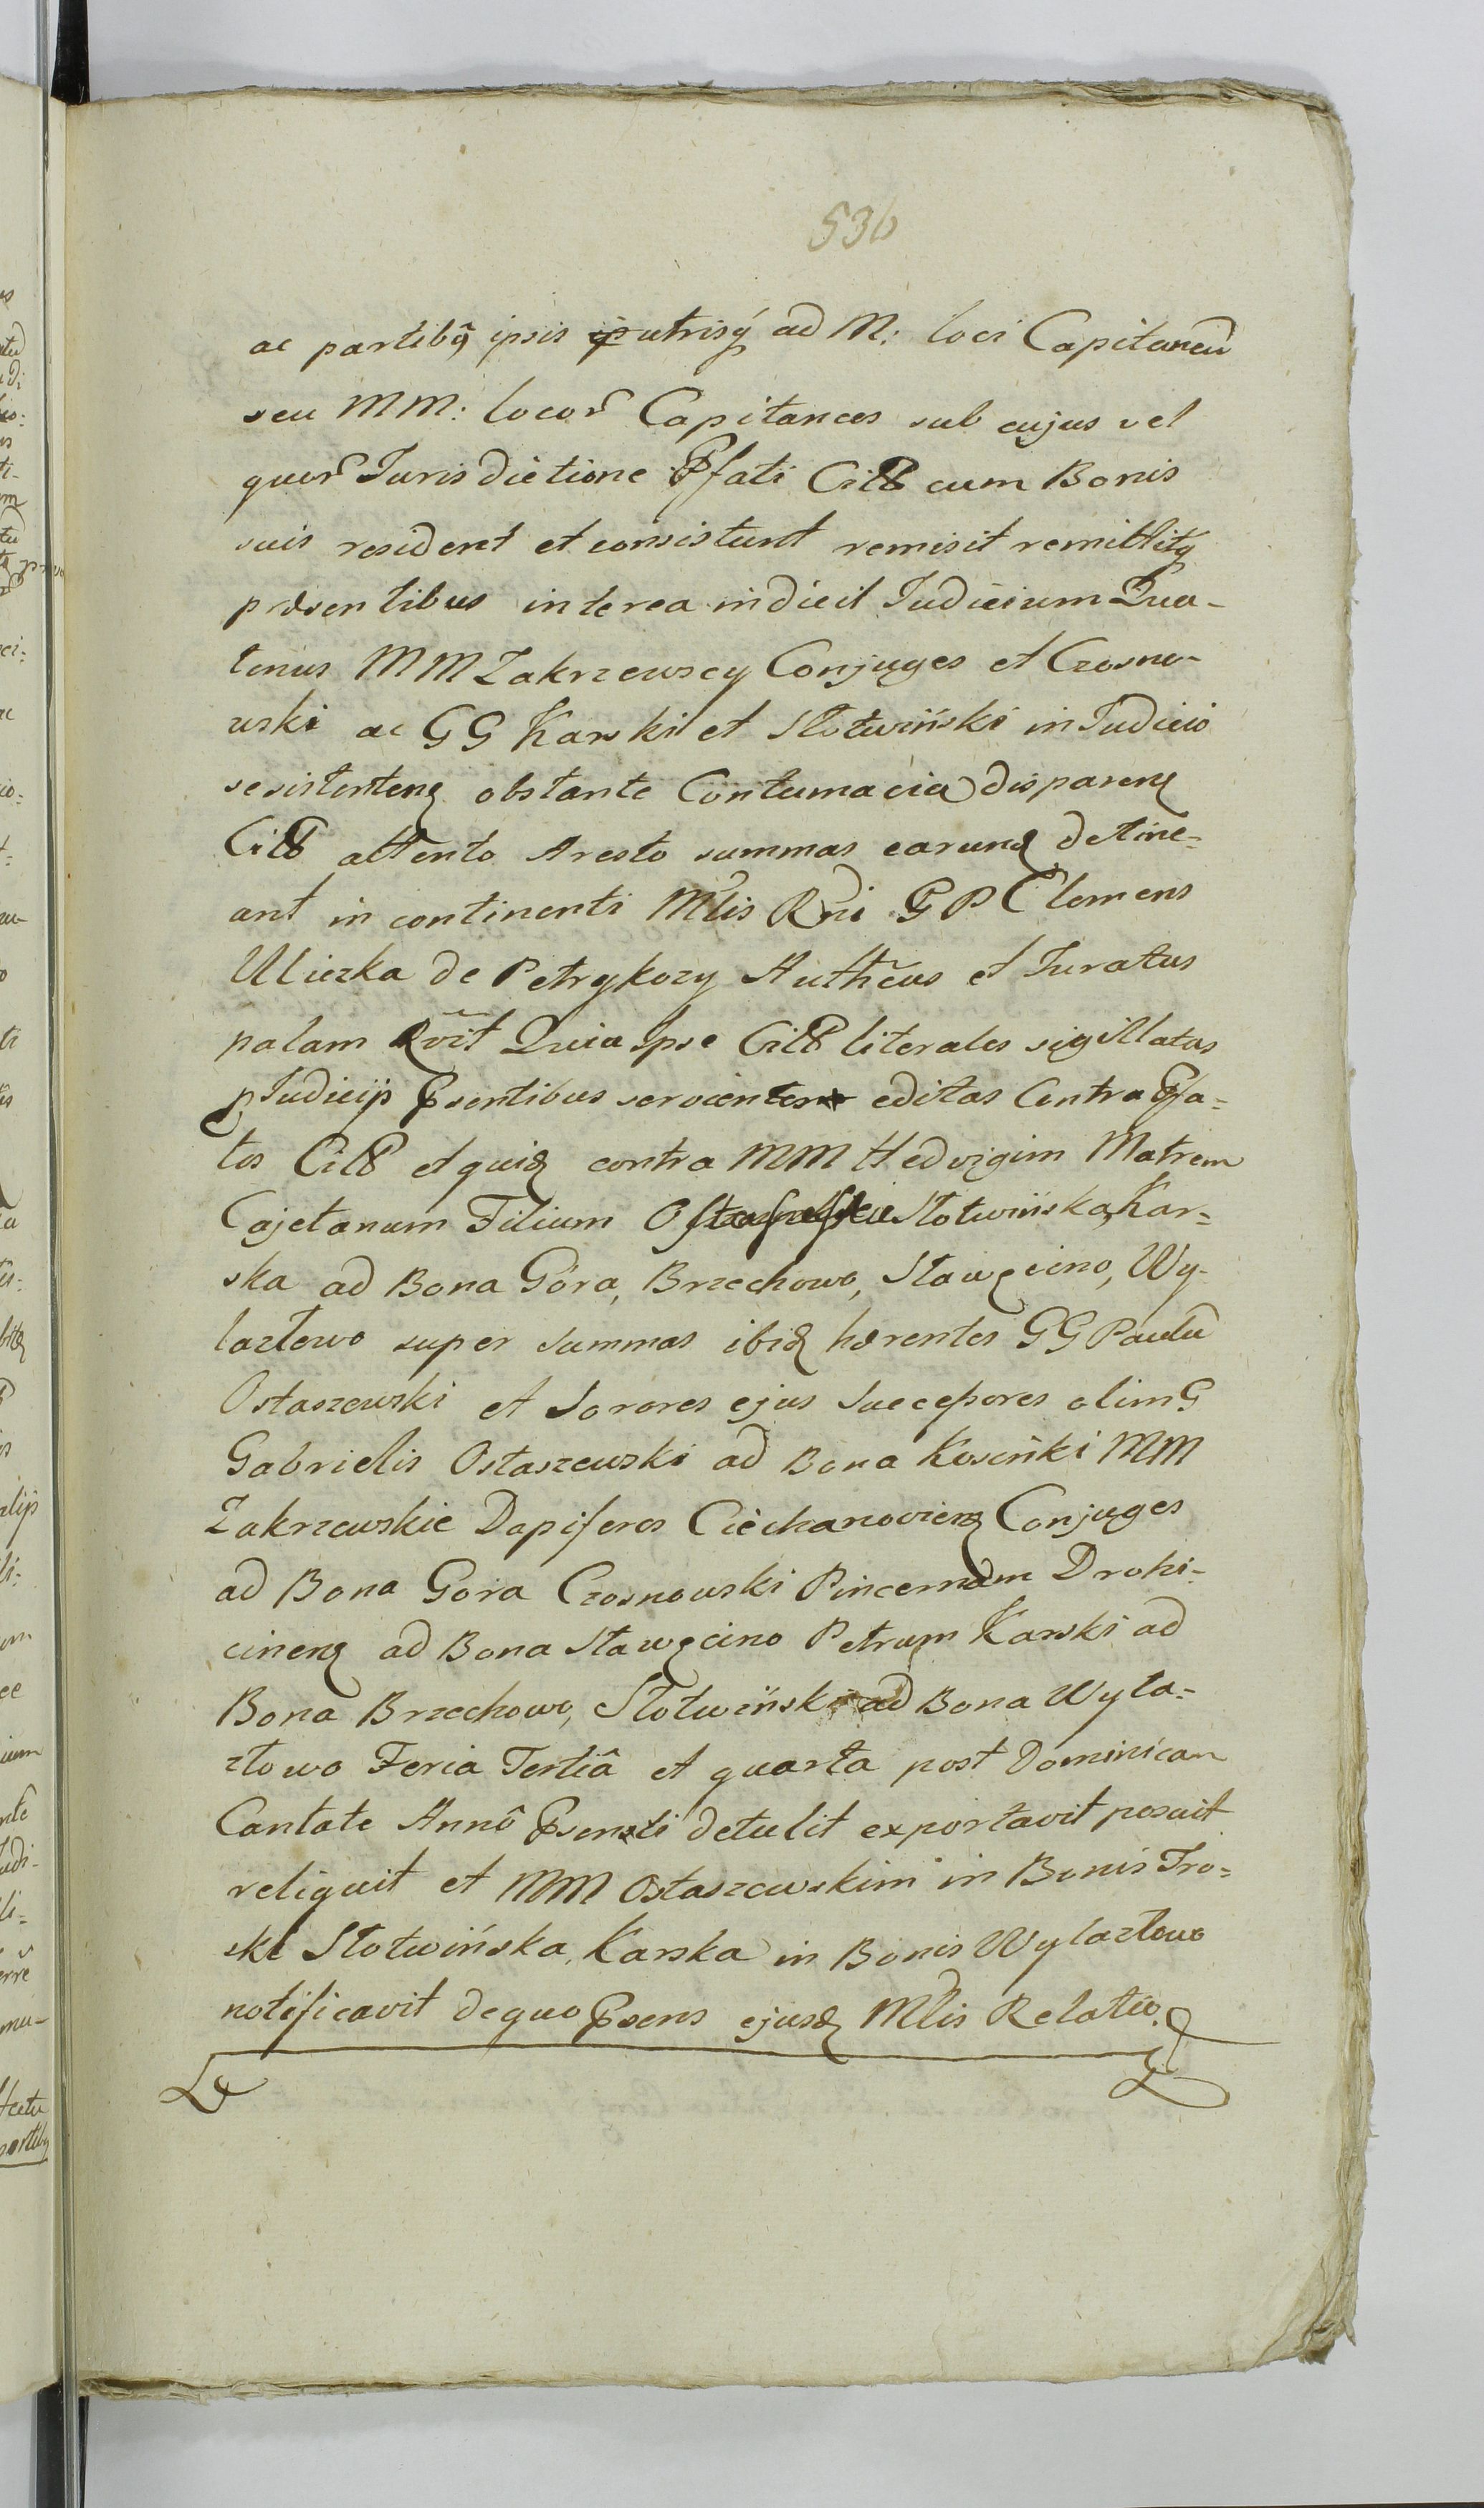 536
ac partibq ipsis utrisq ad M: loci Capitaneu
seu MM: locor Capitaneos sub cujus vel
quor Jurisdictione Pfati Citt cum Bonis
suis resident et consistunt remisit remittitq
præsentibus interea indicit Judicium Qua-
tenus MM Zakrzewscy Conjuges et Czosno-
wski ac GG Karski et Słotwiński in Judicio
se sistenten obstante Contumacia disparen
Citt attento Aresto summas earund detine-
ant in continenti Mtlis Rni GP Clemens
Uliczka de Petrykozy Authcus et Juratus
palam Rvit Quia Ipse Citt literales sigillatas
p Judicijs Psentibus servientes editas Contra Pfa-
tos Citt et quid contra MM Hedvigim Matrem
Cajetanum Filium Słotwińska, Kar-
ska ad Bona Góra, Brzechowo, Sławęcino, Wy-
lazłowo super summas ibid hærentes GG Paulu
Ostaszewski et Sorores ejus Successores olim G
Gabrielis Ostaszewski ad Bona Kosińki MM
Zakrzewskie Dapiferos Ciechanovien Conjuges
ad Bona Gora Czosnowski Pincernam Drohi-
cinen ad Bona Sławęcino Petrum Karski ad
Bona Brzechowo, Słotwiński ad Bona Wyła-
złowo Feria Tertiâ et quarta post Dominicam
Cantate Annô Psenti detulit exportavit posuit
reliquit et MM Ostaszewskim in Bonis Tro-
ski Słotwińska, Karska in Bonis Wylazłowo
notificavit de quo Psens ejusd Mtlis Relatio.